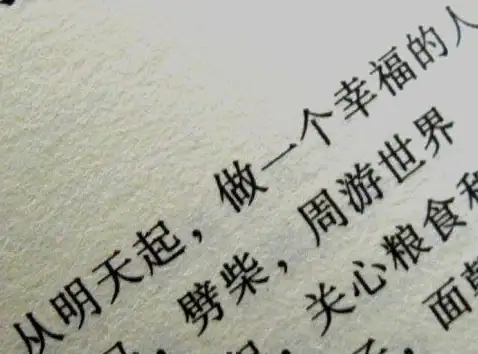 从明天起，做一个幸福的人
劈柴，周游世界
，关心粮食和
，面朝